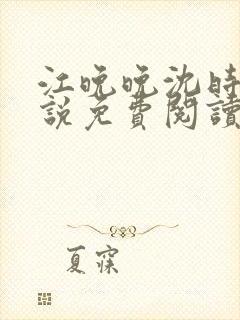 江晚晚沈时
說免費閱讀
夏寐